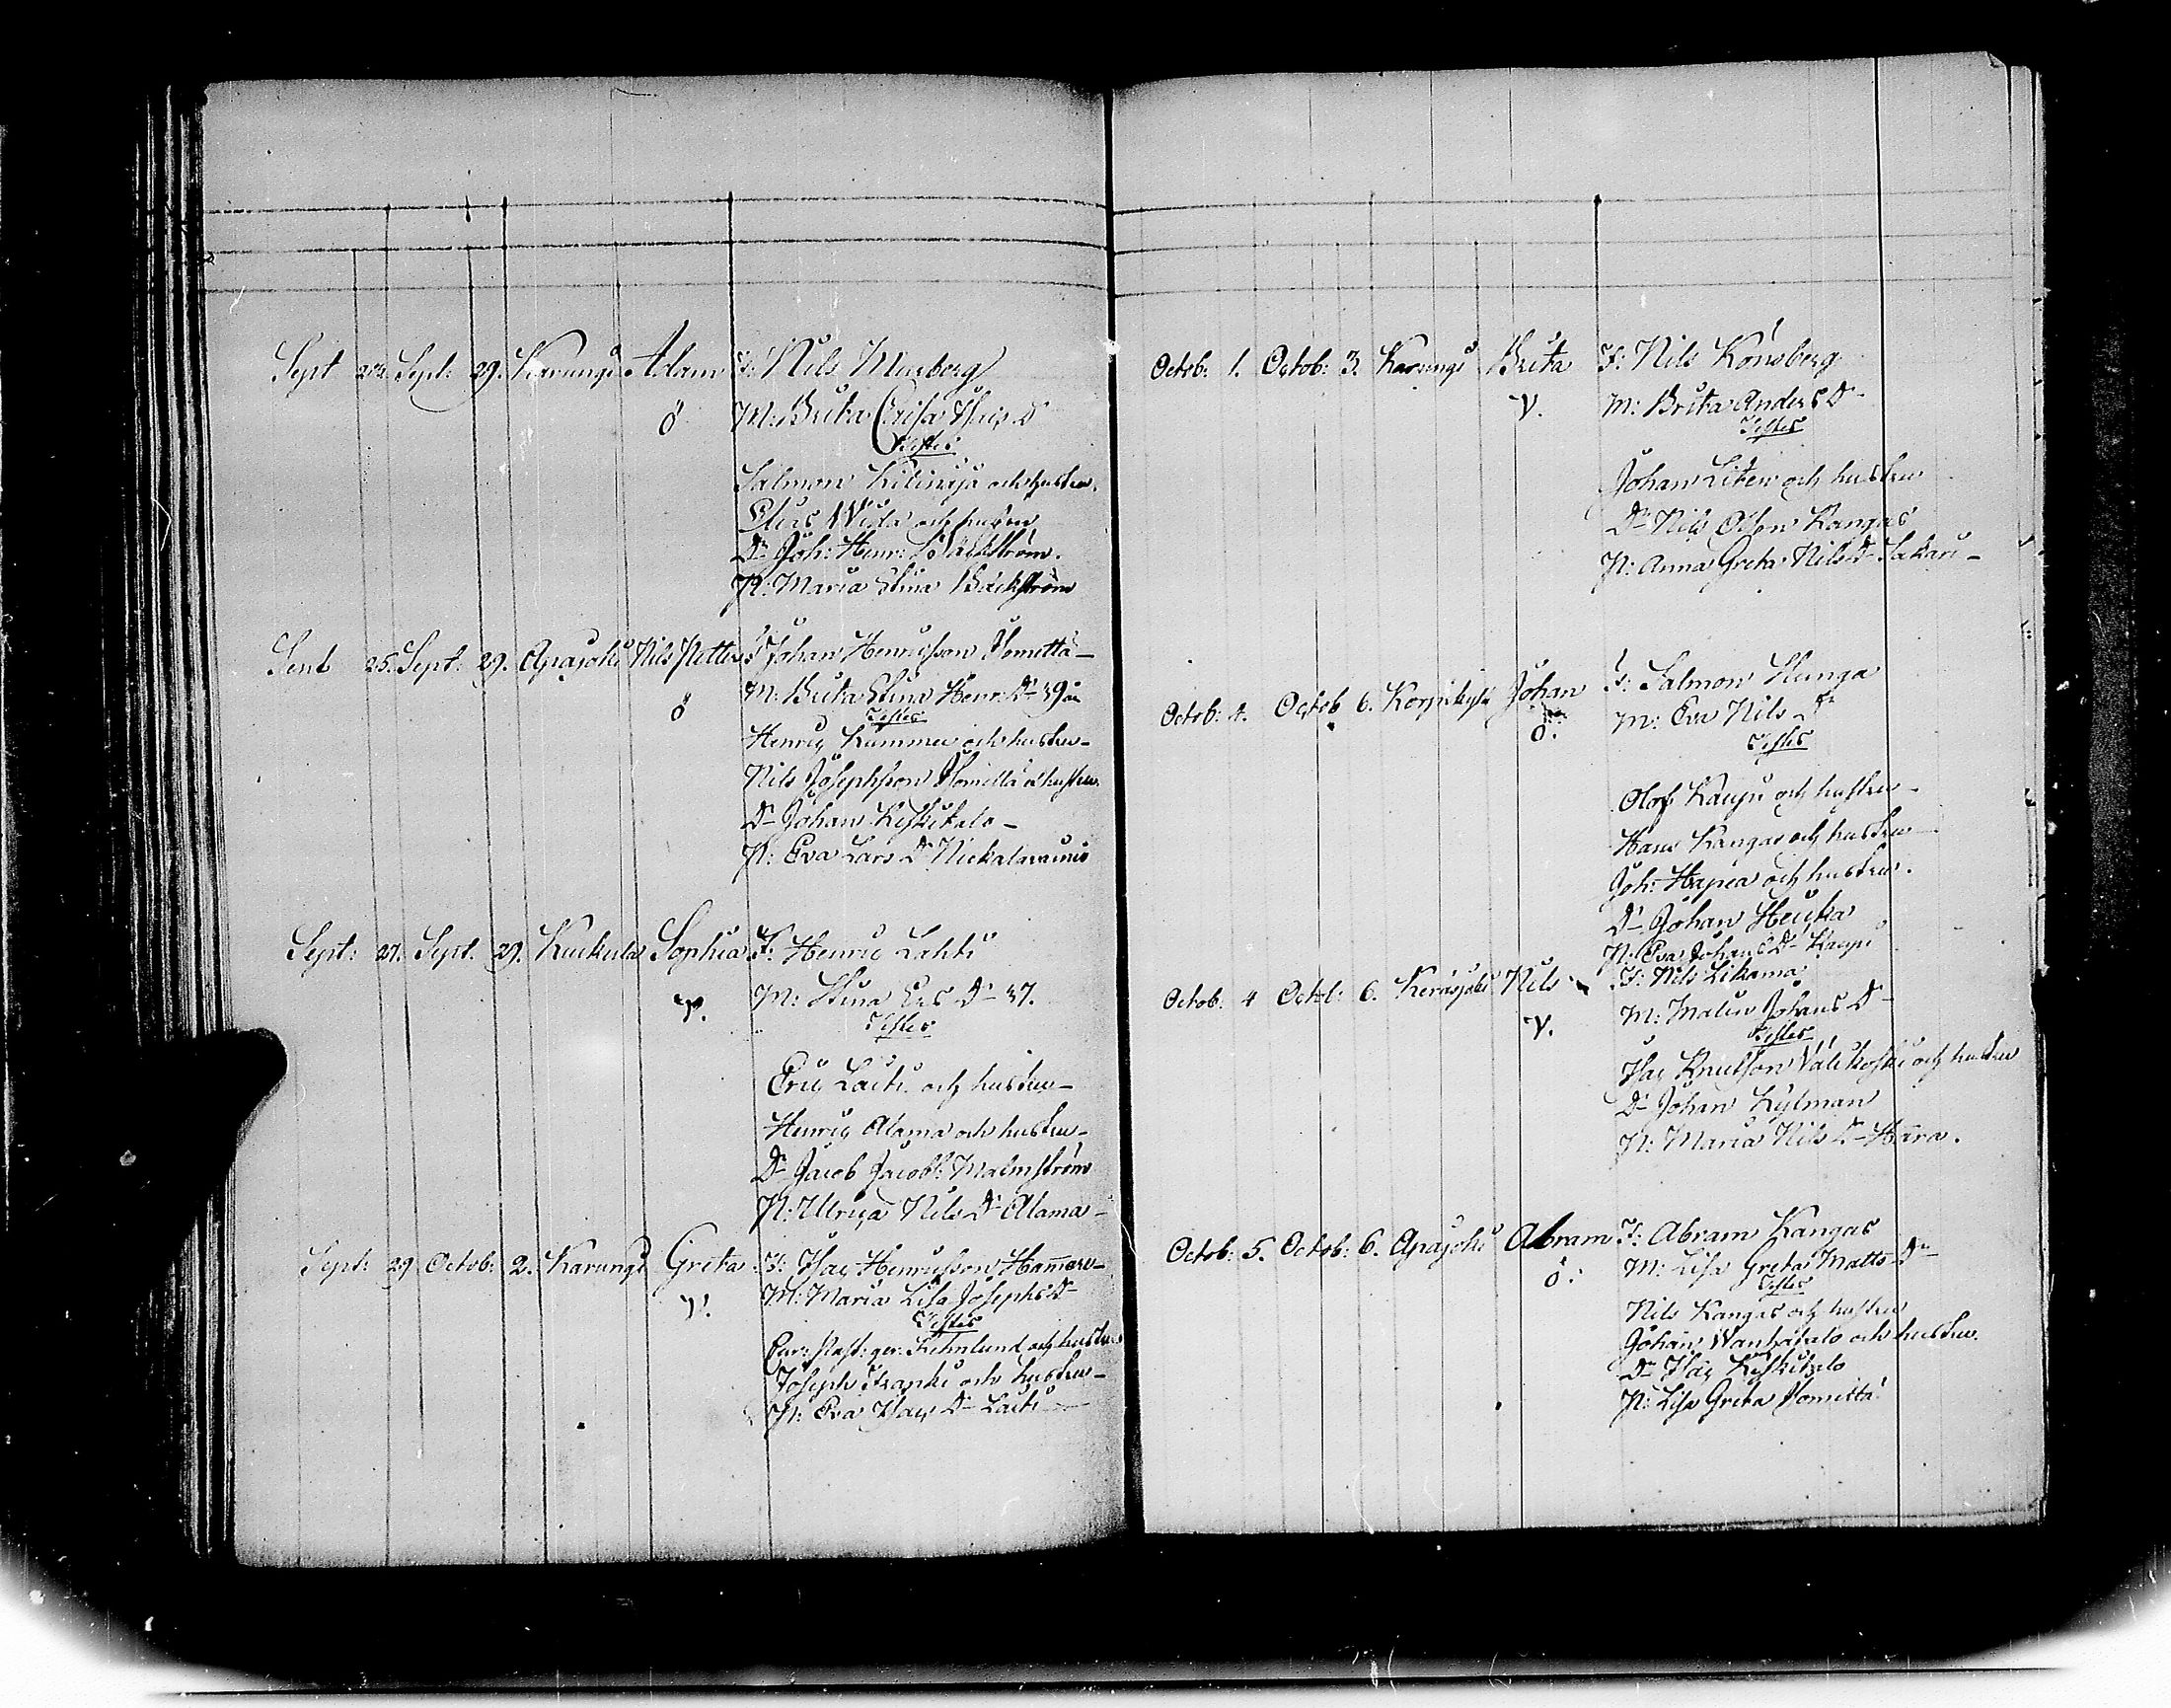 Sept 24. Sept: 29. Karungi Adam F: Nils Murberg
ö M: Brita Caisa Isaks Dr
Testes
Salmon Kilinsja och hustru.
Elias Wida och hustru
Dr Joh: Henr: Bäckström.
P: Maria Stina Bäckström
Sept 25. Sept: 29. Apajoki Nils Petter F Johan Henriksson Homettä
ö M: Brita Stina Henr: Dr 39 år
Testes
Henric Kummu och hustru
Nils Josephsson Homettä o hustru
Dr Johan Keskitalo
P: Eva Lars Dr Nickalavainio
Sept: 27. Sept. 29. Kuckula Sophia F: Henric Lahti
v. M: Stina Ers Dr 37.
Testes
Eric Laiti och hustru
Henric Alama och hustru
Dr Jacob Jacobs: Malmström
P: Ulrica Nils Dr Alama
Sept: 29 Octob: 2. Karungi Greta F: Isac Henricsson Hammare
v. M: Maria Lisa Josephs Dr
Testes
och hustru
Joseph och hustru
P: Eva Isacs Dr Laiti
Octob: 1. Octob: 3. Karungi Brita F: Nils Könsberg
v. M: Brita Anders Dr
Testes
Johan Liten och hustru
Dr Nils Olson Kangas
P: Anna Greta Nils Dr Sakari
Octob: 4. Octob 6. Korpikylä Johan F: Salmon Hunga
ö. M: Eva Nils Dr
Testes
Olof Kauppi och hustru
Hans Kangas och hustru
Joh: Hapia och hustru.
Dr Johan Heicka
P: Eva Johans Dr Kauppi
Octob: 4 Octob: 6. Keräsjoki Nils F: Nils Likama
v. M: Malin Johans Dr
Testes
Isac Knutson Välikoski och hustru
Dr Johan Kylman
P: Maria Nils Dr Hara.
Octob: 5. Octob: 6. Apajoki Abram F: Abram Kangas
ö. M: Lisa Greta Matts Dr
Testes
Nils Kangas och hustru
Johan Wanhatalo och hustru.
Dr Isac Keskitalo
P: Lisa Greta Homettä